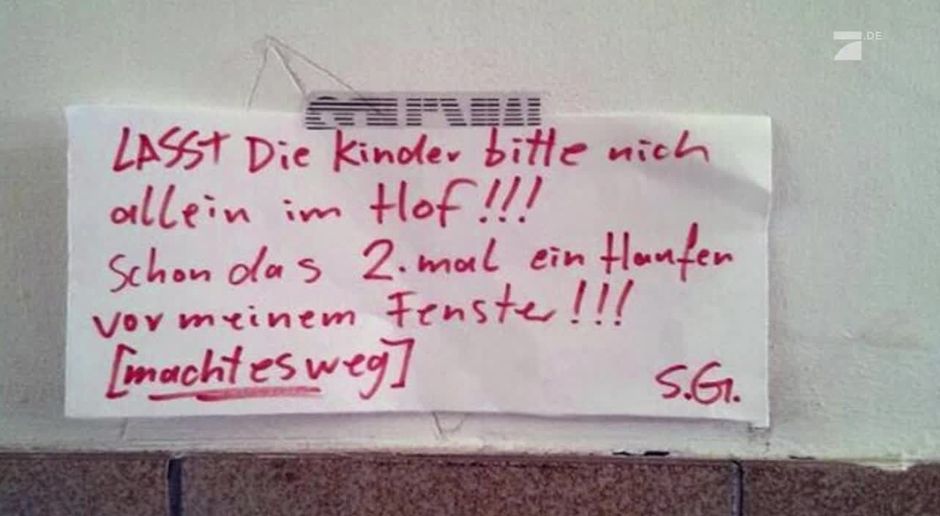 .DE
LASST Die Kinder bitte nich
allein im Hof!!!
Schon das 2. mal ein Haufen
vor meinem Fenster!!!
[macht es weg]
S.G.